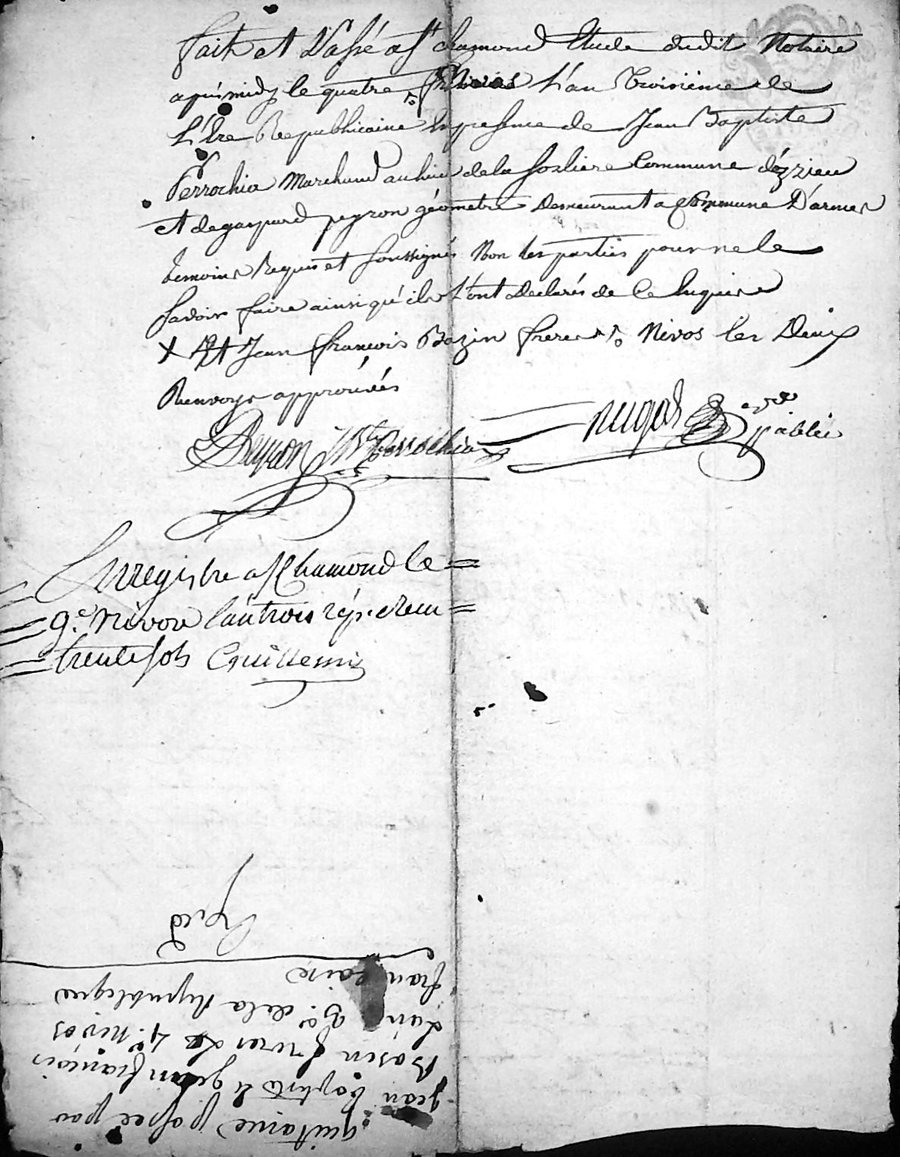 fait et Passé a St chamond Etude dudit Notaire
apresmidy le quatre Nivos L'an Troisième de
L'Ere Republicaine En presence de Jean Baptiste
Perrochia Marchand au lieu de la Commune d'ézieu
et de gaspard peyron géometre Demeurant a Commune D'armes
temoins Requis et soussignés Non les parties pour ne le
savoir faire ainsi qu'ils L'ont declarés de ce Enquis
X Et Jean françois Bazin freres Nivos les Deux
Renvoys approuvés
Peyron JB Perrochia
public
Enregistre a St Chamond le
9e nivose l'an trois rép. reçu
trente sols Guillemin
quitance passee par
jean baptiste & jean françois
Basin freres Le 4e. nivos
L'an 3e. de la Republique
francaise